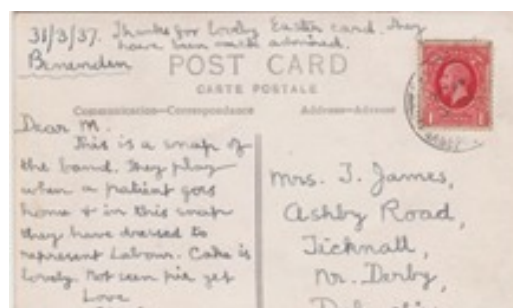 31/3/37. Thanks for lovely Easter card. They
have been much admired.
Benenden
POST CARD
CARTE POSTALE
Communication—Correspondance
Address—Adresse
Dear M.
This is a snap of
the band. They play
when a patient goes
home & in this snap
they have dressed to
represent Labour. Cake is
lovely. Not seen pie yet
Love
Mrs. J. James,
Ashby Road,
Ticknall,
Nr. Derby,